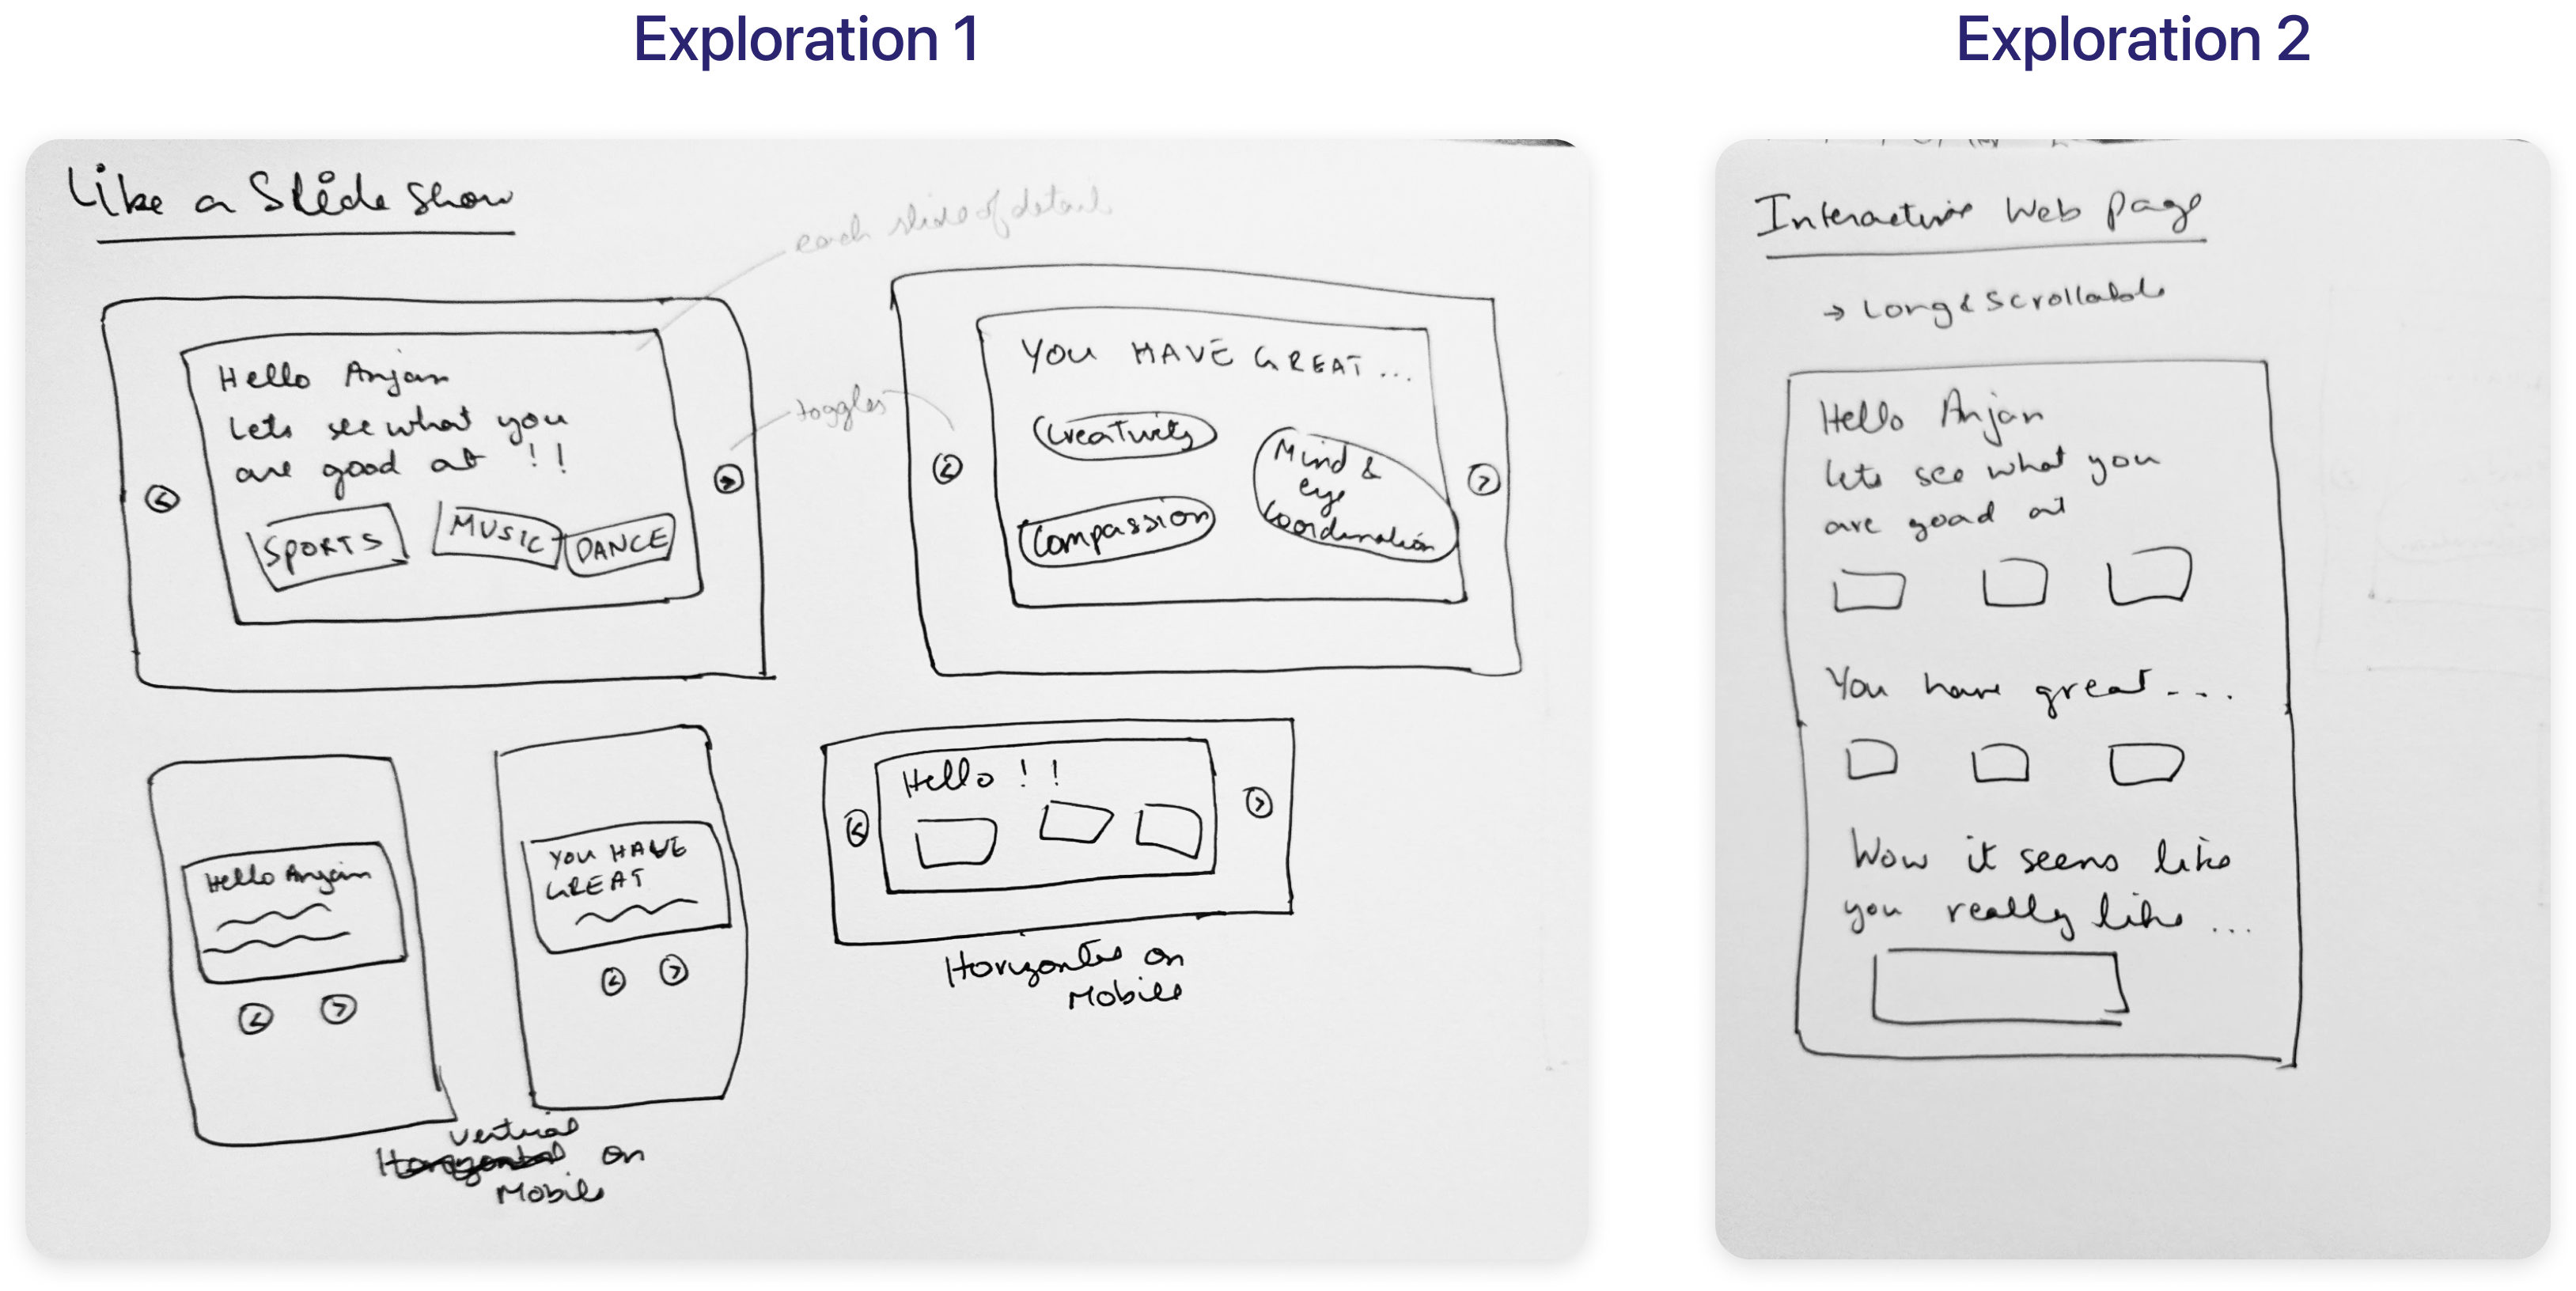 Exploration 1
Like a Slide show
each slide of detail
Hello Anjan
Lets see what you
are good at !!
SPORTS
MUSIC
DANCE
toggles
YOU HAVE GREAT...
Creativity
Mind &
eye
Coordination
Compassion
Hello Anjan
YOU HAVE
GREAT
Vertical
Horizontal on
Mobile
Hello !!
Horizontal on
Mobile
Exploration 2
Interactive Web page
→ Long & Scrollable
Hello Anjan
lets see what you
are good at
You have great....
Wow it seems like
you really like ...